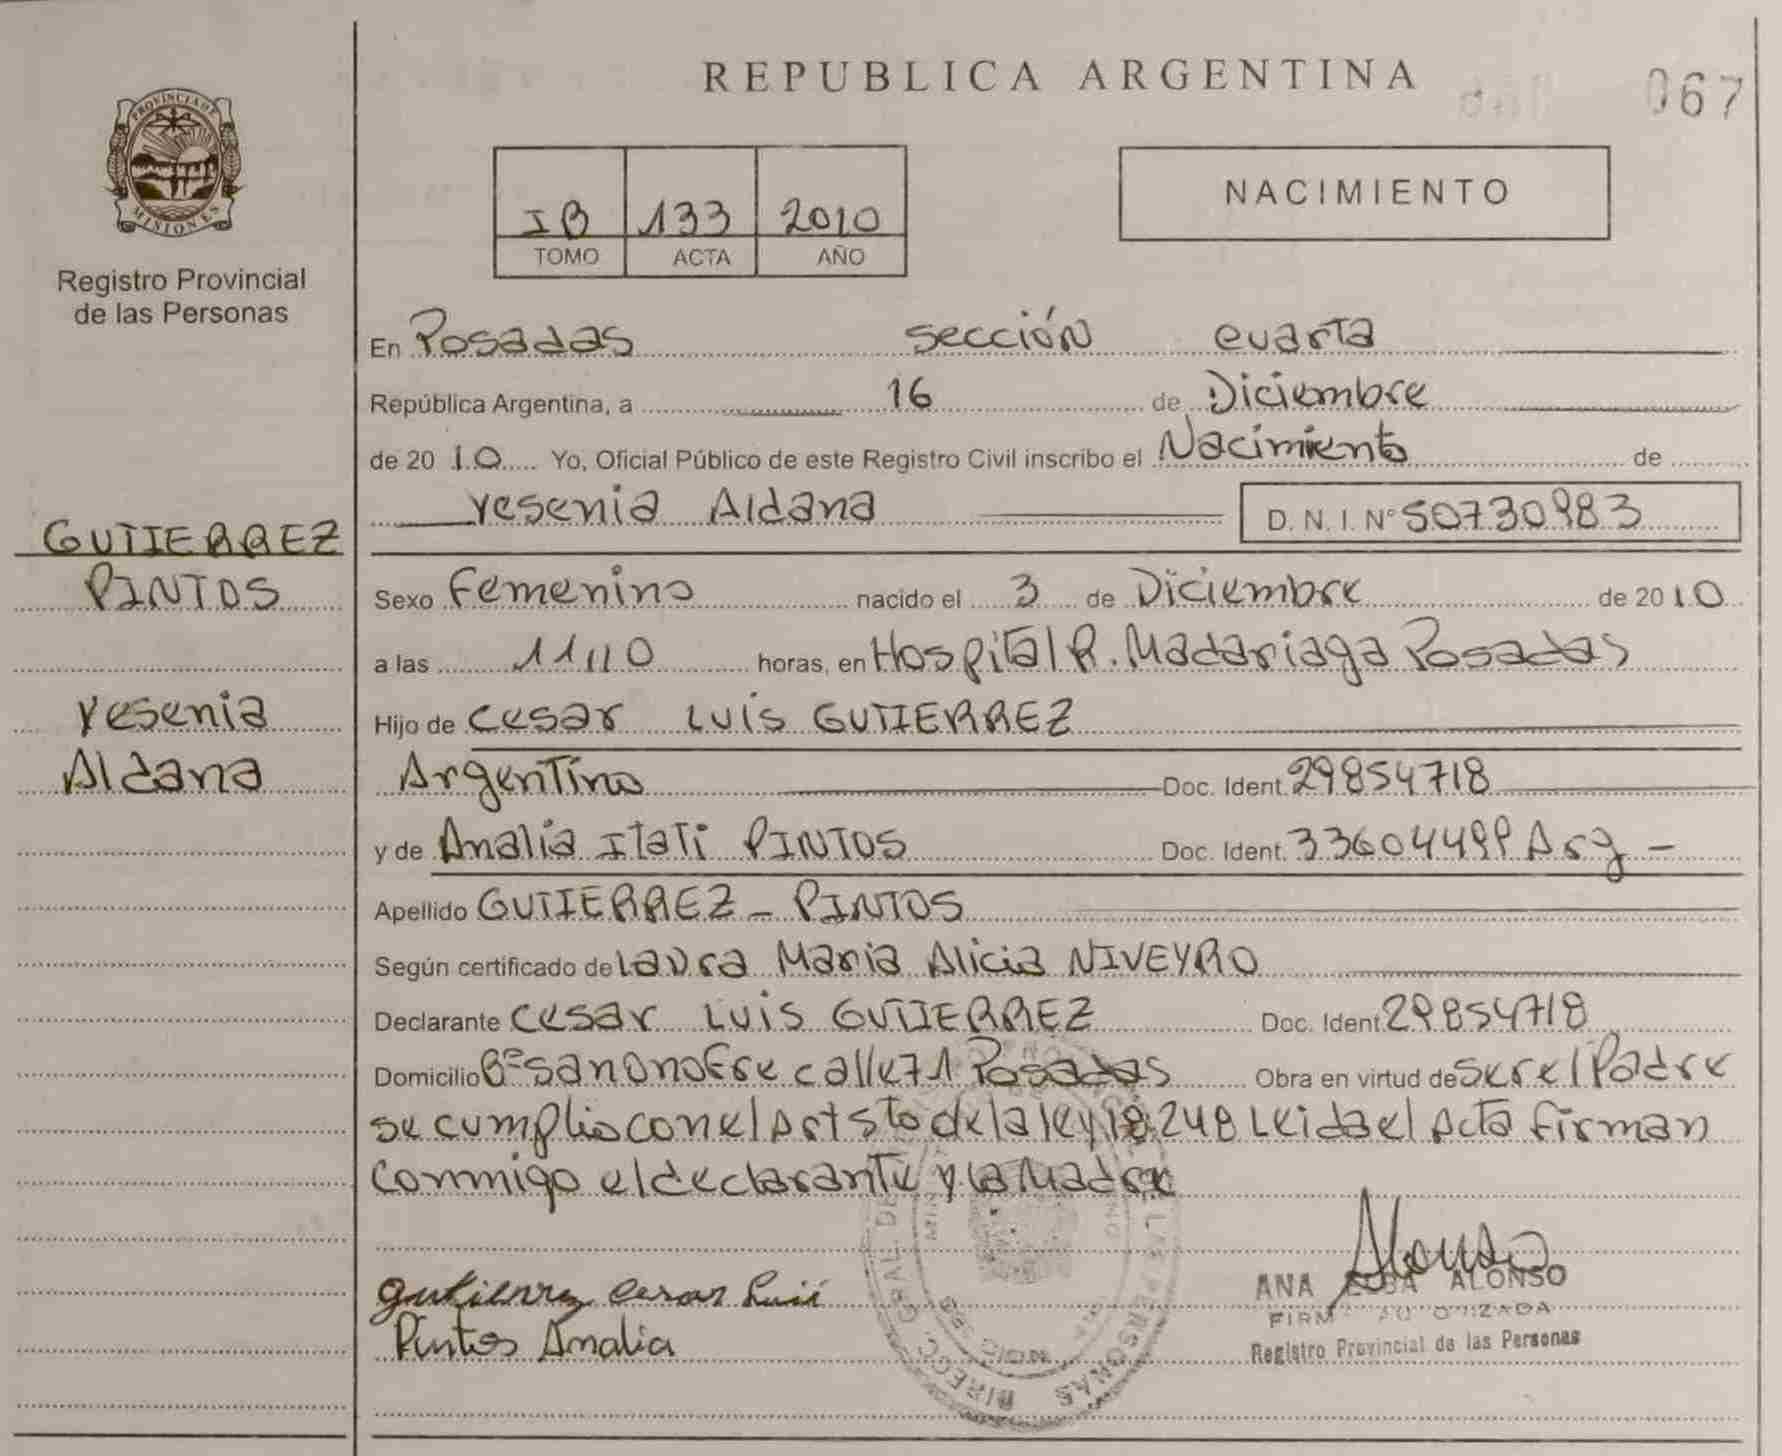 REPUBLICA ARGENTINA
067
PROVINCIA DE
MISIONES
Registro Provincial
de las Personas
IB 133 2010
TOMO ACTA AÑO
NACIMIENTO
En Posadas sección cuarta
República Argentina, a 16 de Diciembre
de 20 10 Yo, Oficial Público de este Registro Civil inscribo el Nacimiento de
Yesenia Aldana D. N. I. Nº 50730983
GUTIERREZ
PINTOS
Yesenia
Aldana
Sexo Femenino nacido el 3 de Diciembre de 20 10
a las 11,10 horas, en Hospital R. Madariaga Posadas
Hijo de Cesar Luis GUTIERREZ
Argentino Doc. Ident. 29854718
y de Analia Itati PINTOS Doc. Ident. 33604499 Arg -
Apellido GUTIERREZ - PINTOS
Según certificado de Laura Maria Alicia NIVEYRO
Declarante Cesar Luis GUTIERREZ Doc. Ident. 29854718
Domicilio Bº San Onofre calle 71 Posadas Obra en virtud de ser el Padre
se cumplio con el Art 5to de la ley 18.248 Leida el Acta firman
commigo el declarante y la Madre
Gutierrez Cesar Luis
Pintos Amalia
Alonso
ANA ALONSO
Registro Provincial de las Personas